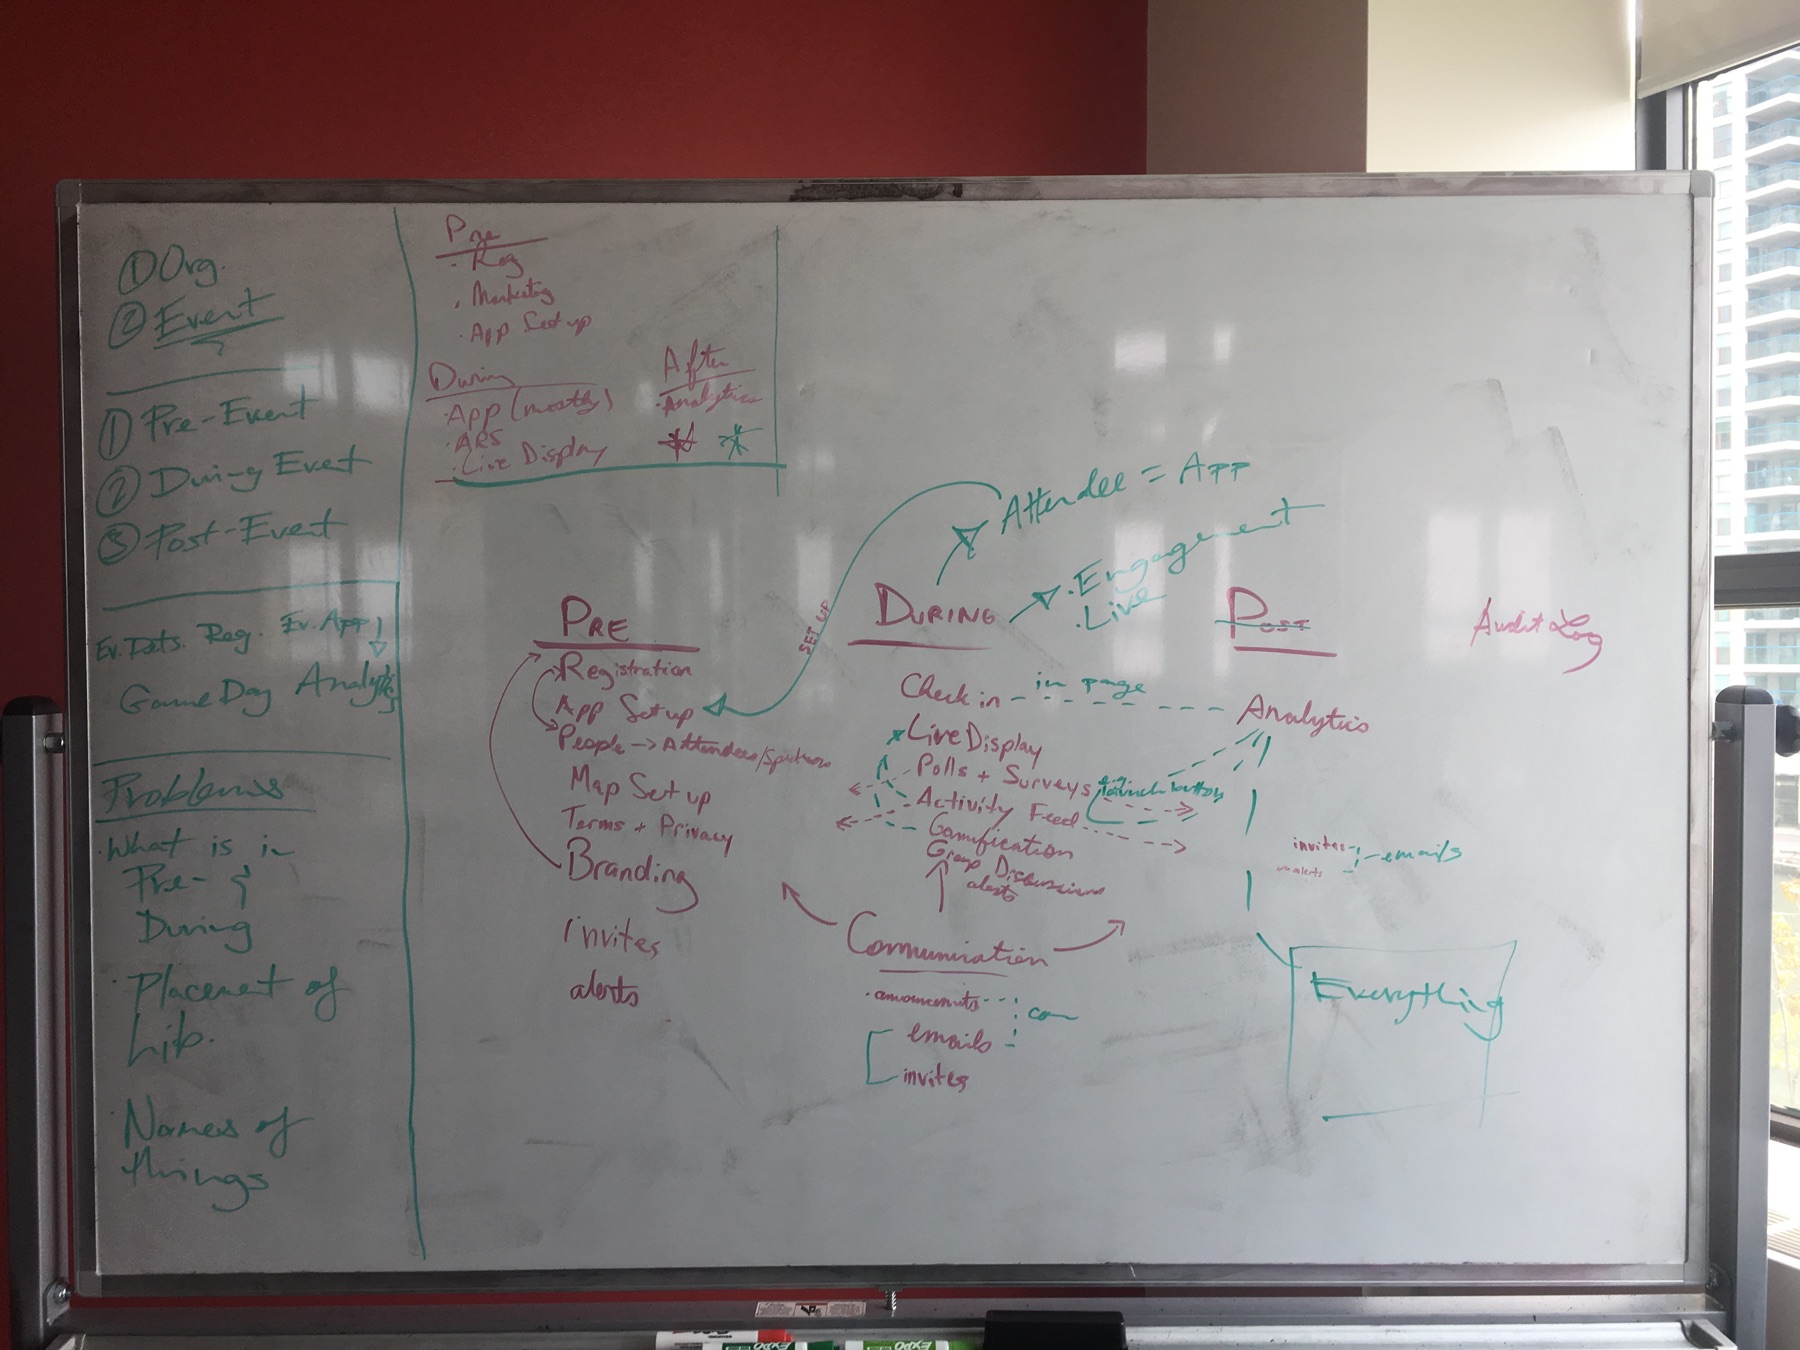 ① Org.
② Event
① Pre-Event
② During Event
③ Post-Event
Ev. Dets. Reg. Ev. App
GameDay Analytics
Problems
· What is in
Pre- &
During
· Placement of
Lib.
· Names of
things
Pre
· Reg
· Marketing
· App Set up
During
· App (mostly)
· ARS
· Live Display
After
· Analytics
Attendee = App
· Engagement
· Live
SET UP
PRE
Registration
App Set up
People → Attendees/
Map Set up
Terms + Privacy
Branding
invites
alerts
DURING
Check in
in page
Live Display
Polls + Surveys
e.g. launch button
Activity Feed
Gamification
Group Discussions
alerts
Communication
· anouncemnts
com
emails
invites
POST
Analytics
invites
alerts
emails
Everything
Audit Log
EXPO